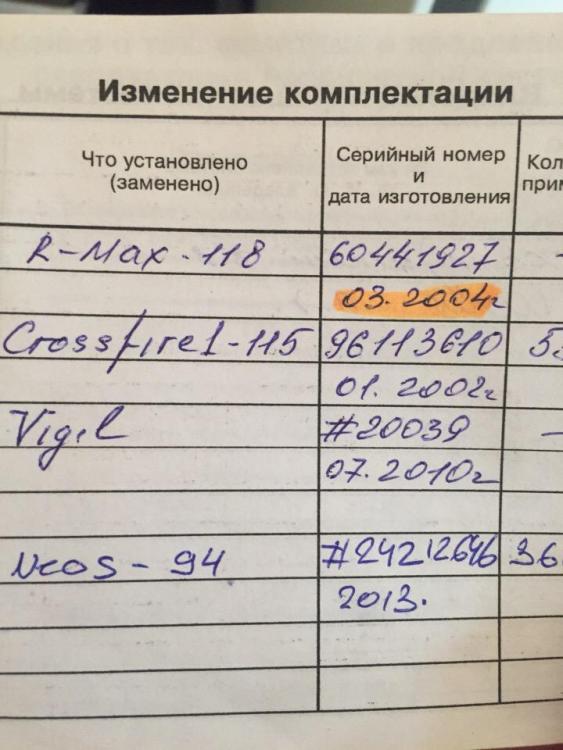 Изменение комплектации
Что установлено
(заменено)
Серийный номер
и
дата изготовления
Кол
прим
R-Max-118 60441927 -
03.2004г
Crossfire1-115 96113610 53
01.2002г
Vigil #20039 -
07.2010г
Neos-94 #24212646 36
2013.